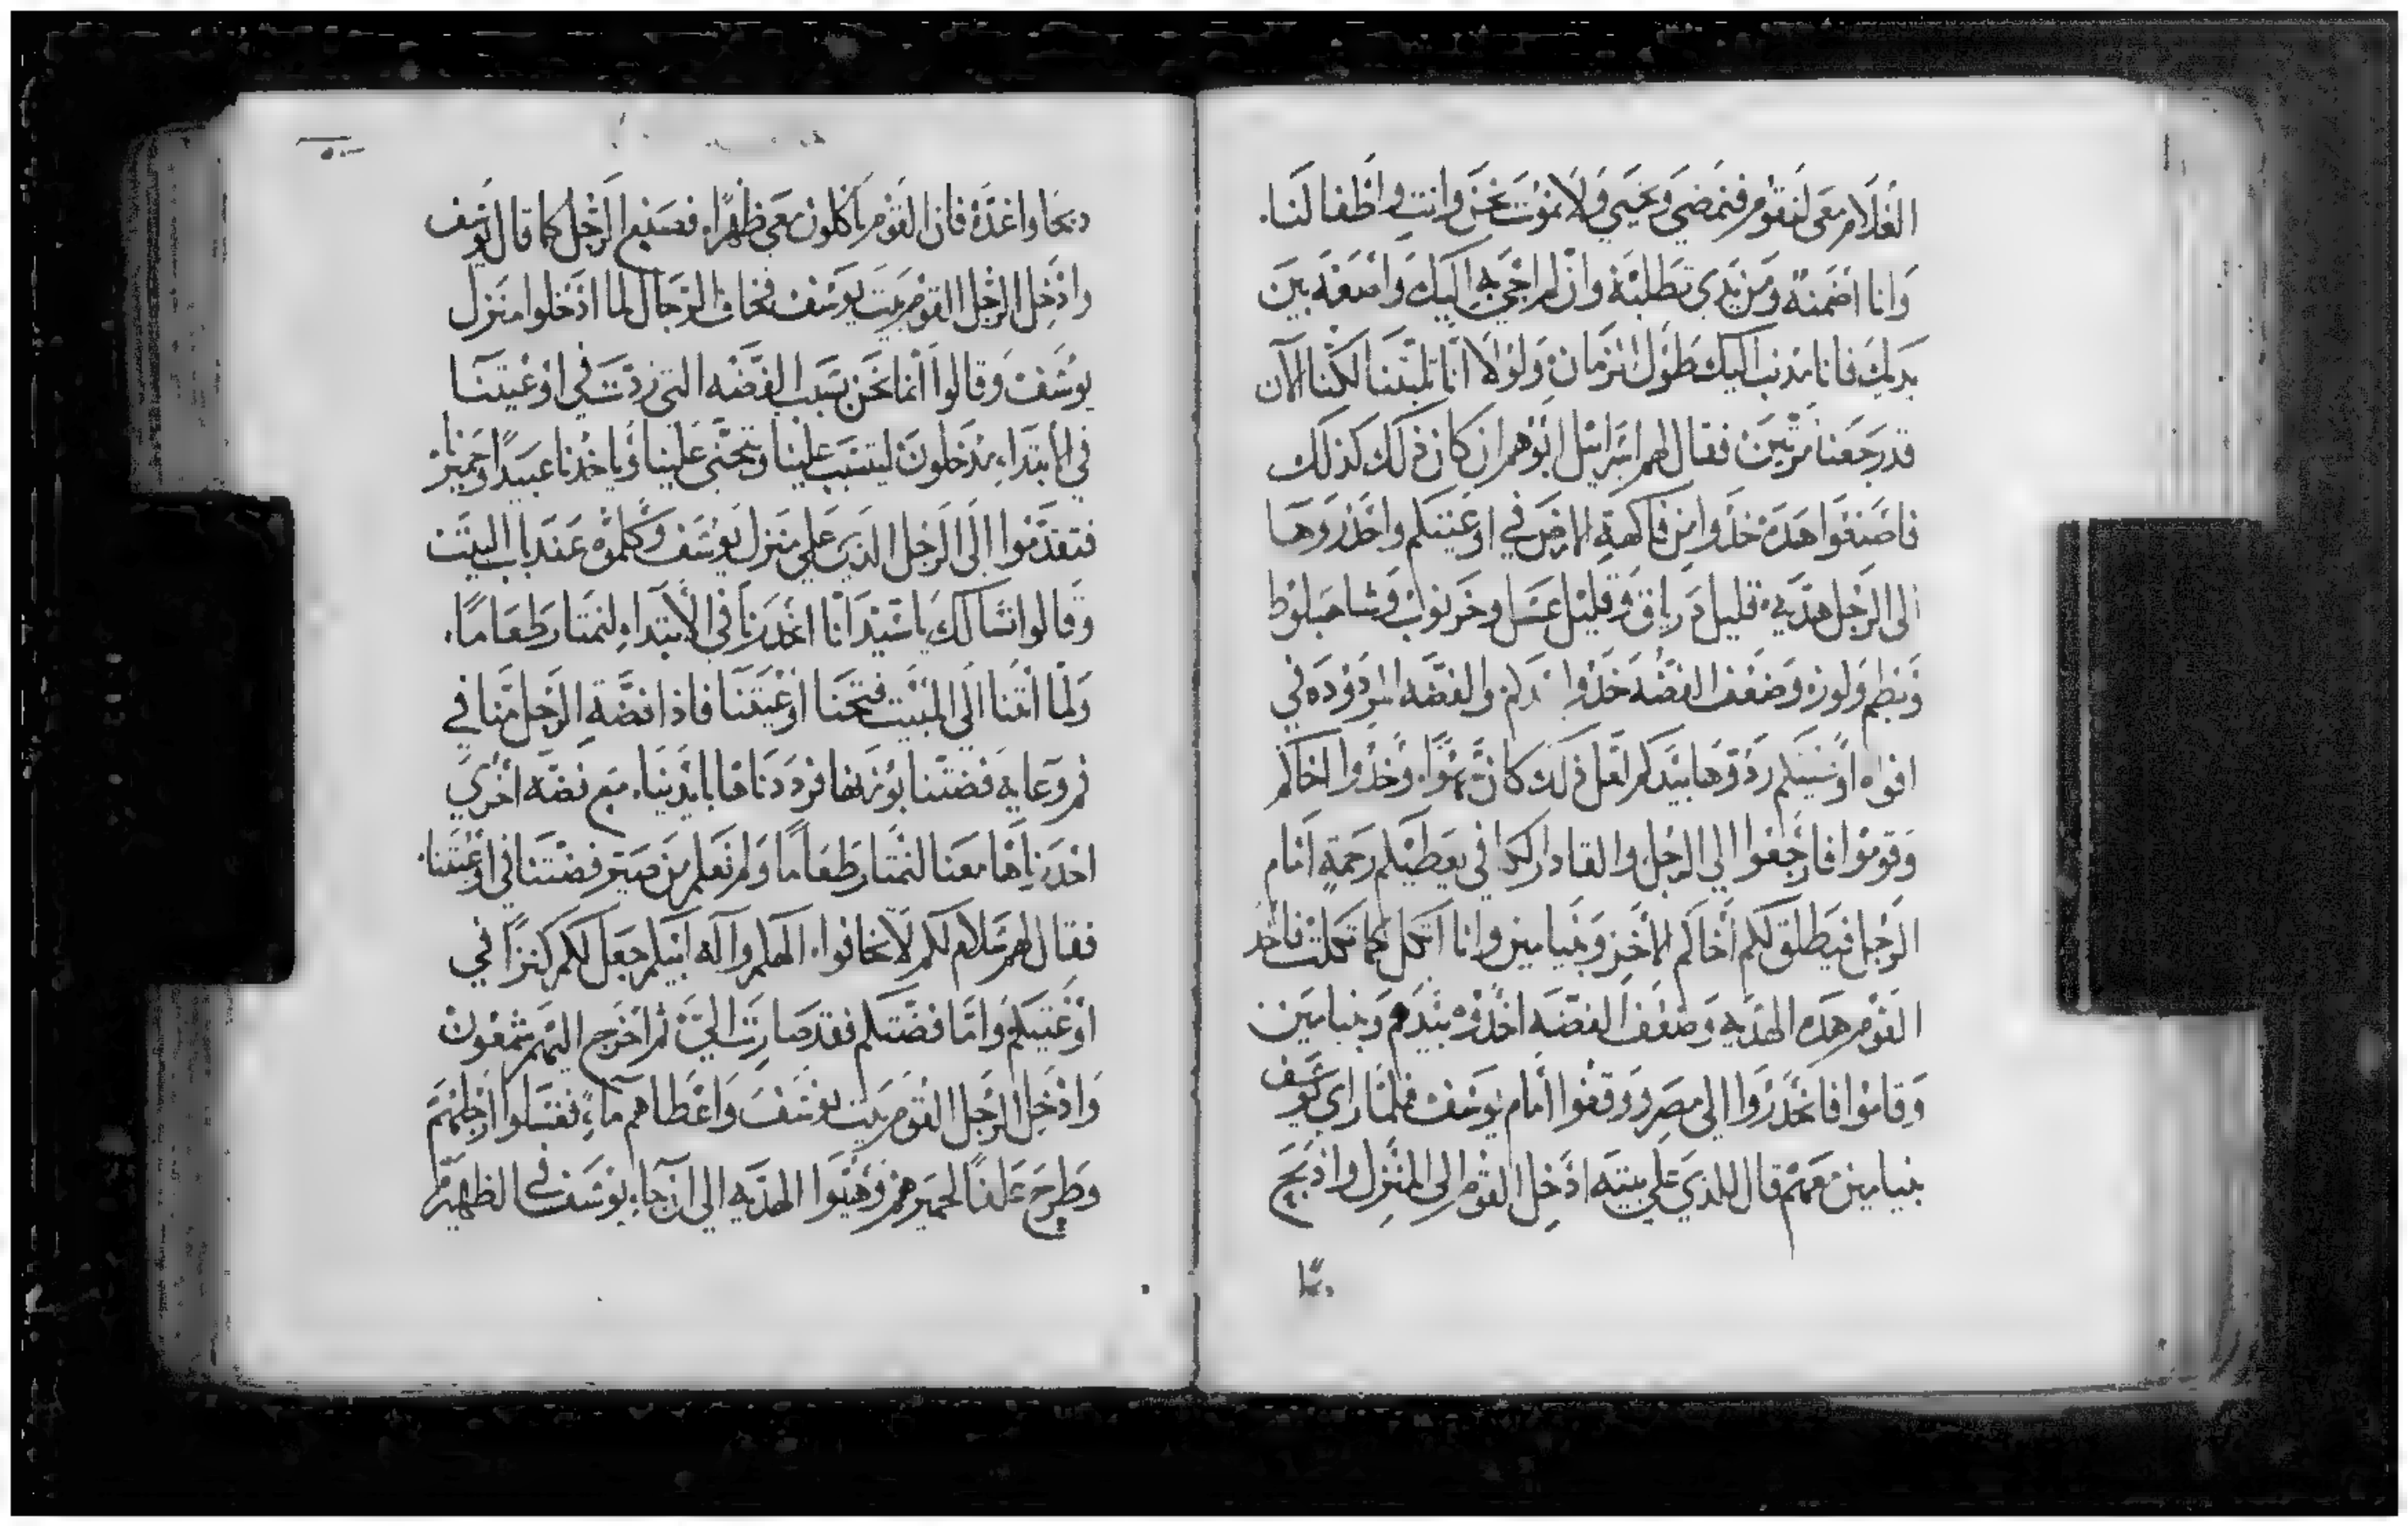 الغلام معى لنقوم فنمضي ونحيي ولا نموت نحن وانت واطفالنا.
وانا اضمنه ومن يدى تطلبه وان لم اجي به اليك واضعه بين
يديك فانا مذنب اليك طول الزمان ولولا انا تلبثنا لكنا الآن
قد رجعنا مرتين فقال لهم اسرائيل ابوهم ان كان ذلك كذلك
فاصنعوا هذه خذوا من فاكهة الارض في اوعيتكم واحذروها
الى الرجل هديه قليل درياق وقليل عسل وخرنوب وشاهبلوط
وبطم ولوز وضعف الفضه خذوا والفضه المردوده في
افواه اوعيتكم ردوها بيدكم لعل ذلك كان سهوًا. وخذوا اخاكم
وقوموا فارجعوا الي الرجل والقادر الكافي يعطيكم رحمةٍ امام
الرجل فيطلق لكم أخاكم الاخر وبنيامين وانا اتكل كما تكلت فاخذ
القوم هذه الهديه وضعف الفضه اخذوه بيدهم وبنيامين
وقاموا فانحذروا الي مصر ووقفوا أمام يوسف فلما راى يوسف
بنيامين معهم قال للذي على بيته ادخل القوم الى المنزل واذبح
دبحا
دبحا واعده فان القوم ياكلون معى ظهرًا. فصنع الرجل كما قال يوسف
وادخل الرجل القوم بيت يوسف فخاف الرجال لما ادخلوا منزل
يوسف وقالوا انما نحن بسبب الفضه التي ردت في اوعيتنا
في الابتداء مدخلون ليتسبب علينا وتجنى علينا وياخذنا عبيدًا وحميرنا
فتقدموا الى الرجل الذي على منزل يوسف وكلموه عند باب البيت
وقالوا نسالك يا سيد انا انحدرنا في الابتداء لنمتار طعامًا.
ولما اتينا الى المبيت فتحنا اوعيتنا فاذا فضة الرجل منا في
فم وعايه فضتنا بوزنها فرددناها بايدينا. مع فضه اخري
احدرناها معنا لنمتار طعاما ولم نعلم من صير فضتنا في اوعيتنا.
فقال لهم سلام لكم لا تخافوا. الهكم واله ابيكم جعل لكم كنزًا في
اوعيتكم واما فضتكم فقد صارت الىّ ثم اخرج اليهم شمعون
وادخل الرجل القوم بيت يوسف واعطاهم ماءً فغسلوا ارجلهم
وطرح علفًا لحميرهم وهيوا الهديه الى ان جاء يوسف في الظهيره